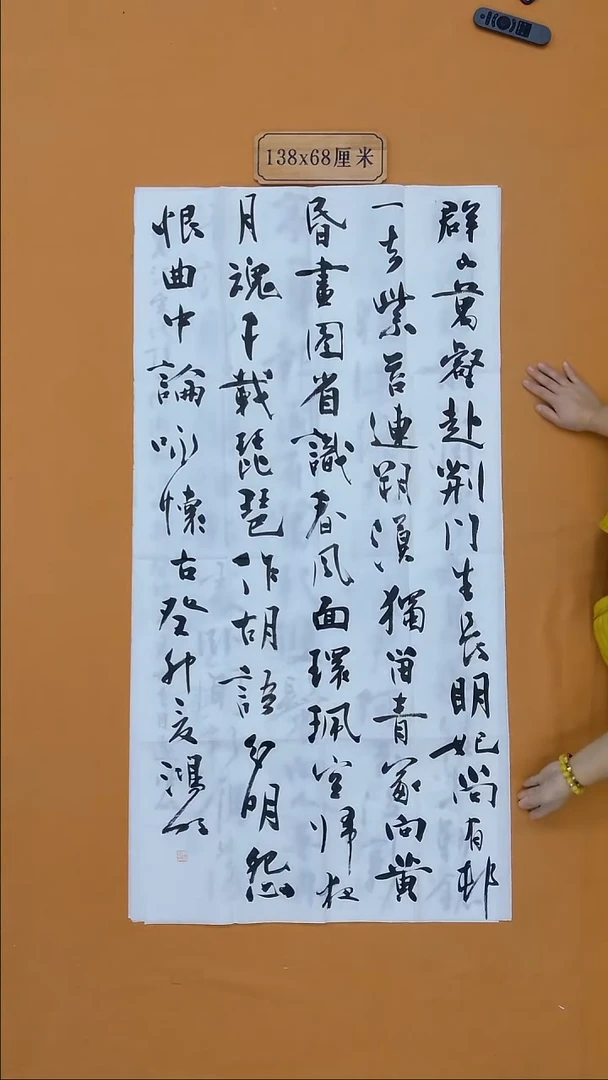 138x68厘米
群山萬壑赴荆門生長明妃尚有邨
一去紫臺連朔漠獨留青冢向黄
昏畫圖省識春風面環珮空歸夜
月魂千載琵琶作胡語分明怨
恨曲中論咏懷古癸卯夏鴻